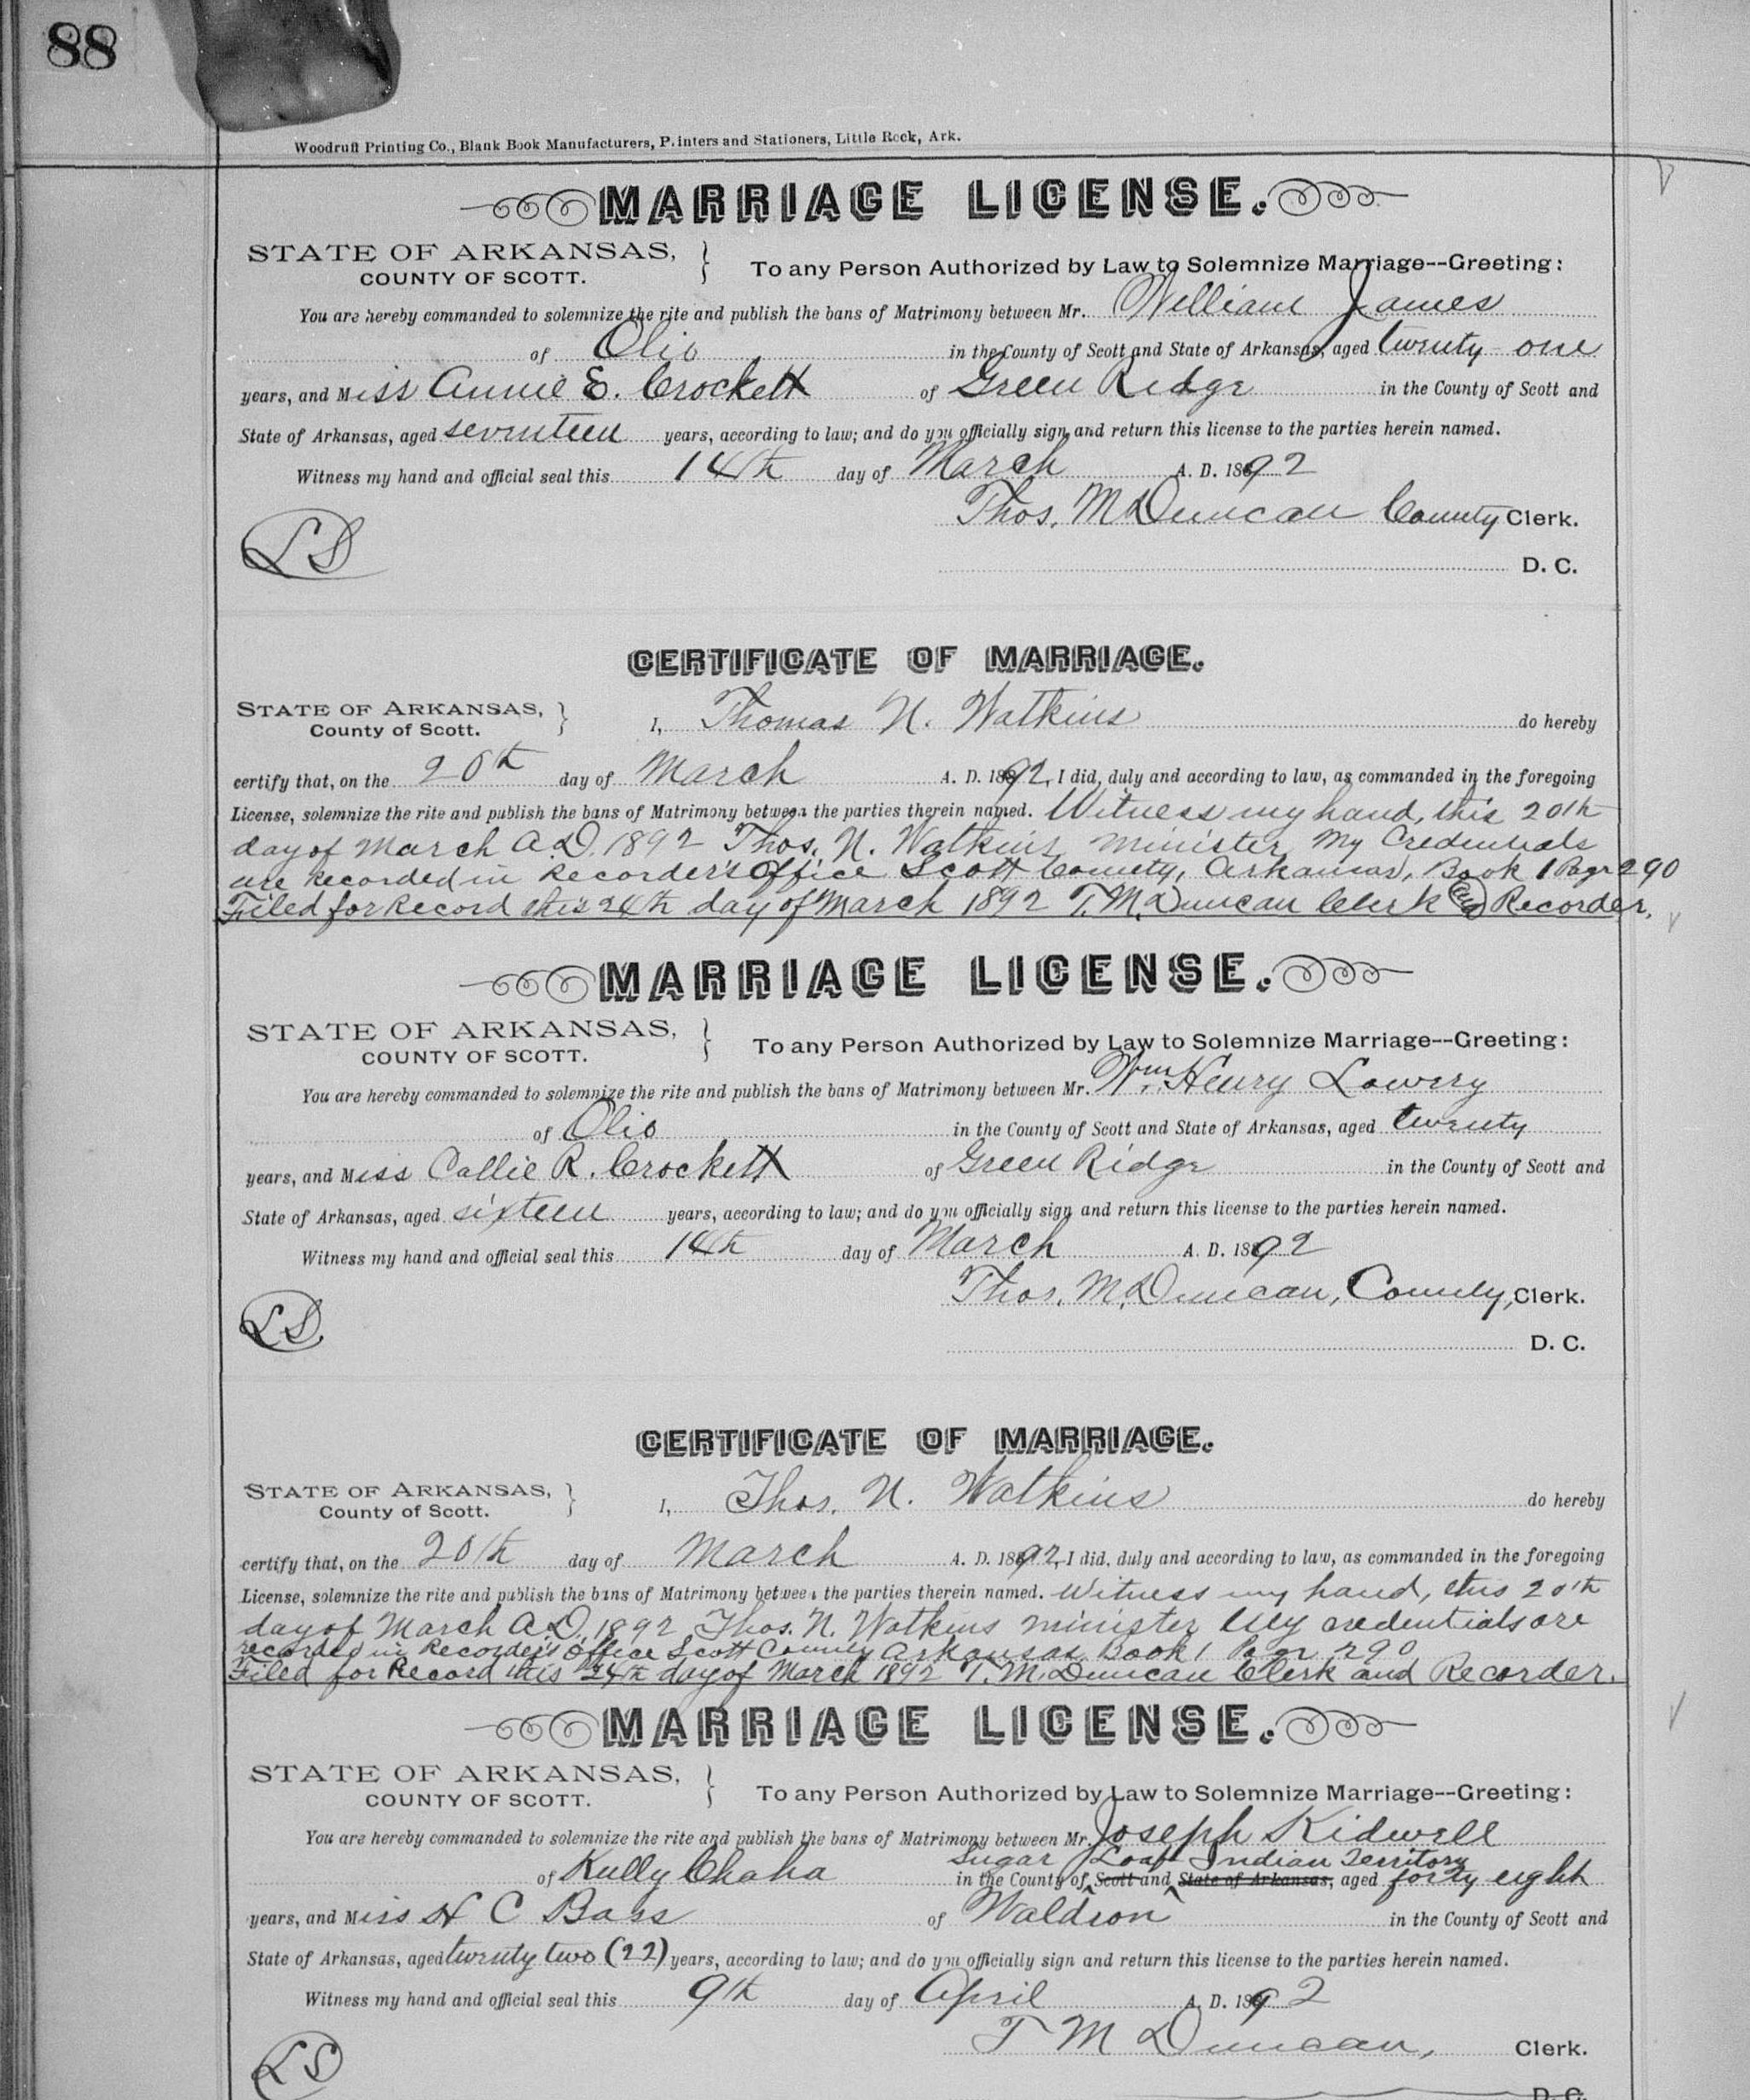 88
Woodruff Printing Co., Blank Book Manufacturers, Printers and Stationers, Little Rock, Ark.
MARRIAGE LICENSE.
STATE OF ARKANSAS,
COUNTY OF SCOTT.
To any Person Authorized by Law to Solemnize Marriage--Greeting:
You are hereby commanded to solemnize the rite and publish the bans of Matrimony between Mr. William James
of Olio in the County of Scott and State of Arkansas, aged twenty one
years, and Miss Annie E. Crockett of Green Ridge in the County of Scott and
State of Arkansas, aged seventeen years, according to law; and do you officially sign and return this license to the parties herein named.
Witness my hand and official seal this 14th day of March A. D. 1892
Thos. M. Duncan County Clerk.
LS
D. C.
CERTIFICATE OF MARRIAGE.
STATE OF ARKANSAS,
County of Scott.
I, Thomas N. Watkins do hereby
certify that, on the 20th day of March A. D. 1892, I did, duly and according to law, as commanded in the foregoing
License, solemnize the rite and publish the bans of Matrimony between the parties therein named. Witness my hand, this 20th
day of March A.D. 1892 Thos. N. Watkins minister My Credentials
are Recorded in Recorder's Office Scott County, Arkansas, Book 1 Page 290
Filed for Record this 24th day of March 1892 T. M. Duncan Clerk and Recorder.
MARRIAGE LICENSE.
STATE OF ARKANSAS,
COUNTY OF SCOTT.
To any Person Authorized by Law to Solemnize Marriage--Greeting:
You are hereby commanded to solemnize the rite and publish the bans of Matrimony between Mr. Wm. Henry Lowery
of Olio in the County of Scott and State of Arkansas, aged twenty
years, and Miss Callie R. Crockett of Green Ridge in the County of Scott and
State of Arkansas, aged sixteen years, according to law; and do you officially sign and return this license to the parties herein named.
Witness my hand and official seal this 14th day of March A. D. 1892
Thos. M. Duncan, County, Clerk.
LS
D. C.
CERTIFICATE OF MARRIAGE.
STATE OF ARKANSAS,
County of Scott.
I, Thos. N. Watkins do hereby
certify that, on the 20th day of March A. D. 1892, I did, duly and according to law, as commanded in the foregoing
License, solemnize the rite and publish the bans of Matrimony between the parties therein named. Witness my hand, this 20th
day of March A.D. 1892 Thos. N. Watkins minister My credentials are
recorded in Recorder's Office Scott County Arkansas Book 1 Page 290
Filed for Record this 24th day of March 1892 T. M. Duncan Clerk and Recorder.
MARRIAGE LICENSE.
STATE OF ARKANSAS,
COUNTY OF SCOTT.
To any Person Authorized by Law to Solemnize Marriage--Greeting:
You are hereby commanded to solemnize the rite and publish the bans of Matrimony between Mr. Joseph Kidwell
Sugar Loaf Indian Territory
of Kully Chaha in the County of Scott and State of Arkansas, aged forty eight
years, and Miss H C Bass of Waldron in the County of Scott and
State of Arkansas, aged twenty two (22) years, according to law; and do you officially sign and return this license to the parties herein named.
Witness my hand and official seal this 9th day of April A. D. 1892
T M Duncan, Clerk.
LS
D. C.